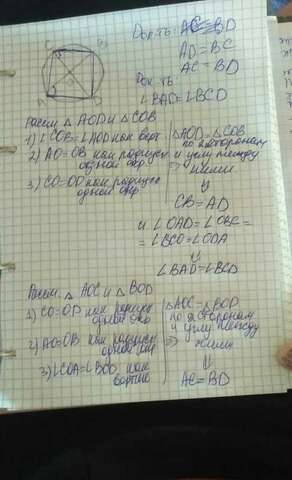 Док-ть: AC = BD
AD = BC
AC = BD
Док-ть
∠BAD = ∠BCD
Рассм △ AOD и △COB
1) ∠COB = ∠AOD как верт
2) AO = OB как радиусы
одной окр
3) CO = OD как радиусы
одной окр
△AOD = △COB
по 2 сторонам
и углу между
ними
⇓
CB = AD
и ∠OAD = ∠OBC =
= ∠BCO = ∠ODA
⇓
∠BAD = ∠BCD
Рассм. △ AOC и △ BOD
1) CO = OD как радиусы
одной окр
2) AO = OB как радиусы
одной окр
3) ∠COA = ∠BOD как
вертик
△AOC = △BOD
по 2 сторонам
и углу между
ними
⇓
AC = BD